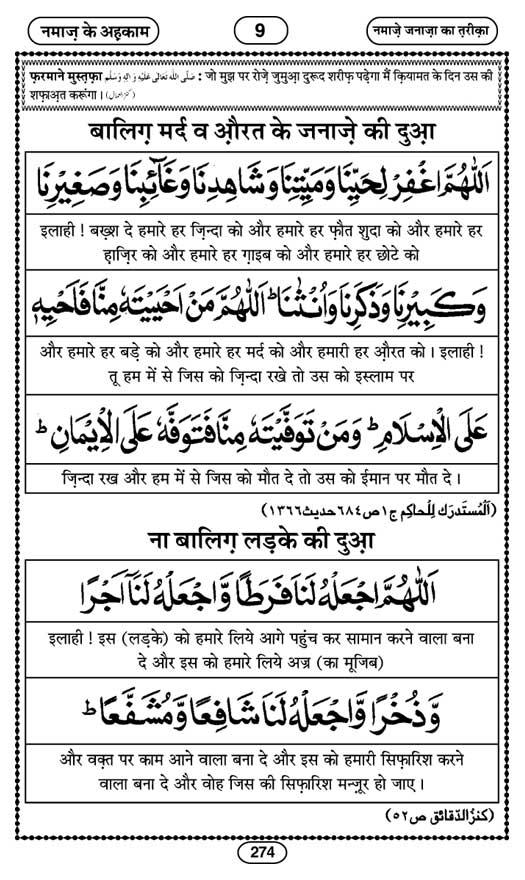 नमाज़ के अहकाम
9
नमाज़े जनाज़ा का तरीक़ा
फ़रमाने मुस्तफ़ा صَلَّى اللّٰهُ تَعَالٰى عَلَيْهِ وَاٰلِهٖ وَسَلَّم : जो मुझ पर रोज़े जुमुआ़ दुरूद शरीफ़ पढ़ेगा मैं क़ियामत के दिन उस की
शफ़ाअ़त करूंगा।
बालिग़ मर्द व औ़रत के जनाज़े की दुआ़
اَللّٰهُمَّ اغْفِرْ لِحَيِّنَا وَمَيِّتِنَا وَشَاهِدِنَا وَغَآئِبِنَا وَصَغِيْرِنَا
इलाही ! बख़्श दे हमारे हर ज़िन्दा को और हमारे हर फ़ौत शुदा को और हमारे हर
हाज़िर को और हमारे हर ग़ाइब को और हमारे हर छोटे को
وَكَبِيْرِنَا وَذَكَرِنَا وَاُنْثٰنَا ؕ اَللّٰهُمَّ مَنْ اَحْيَيْتَهٗ مِنَّا فَاَحْيِهٖ
और हमारे हर बड़े को और हमारे हर मर्द को और हमारी हर औ़रत को। इलाही !
तू हम में से जिस को ज़िन्दा रखे तो उस को इस्लाम पर
عَلَى الْاِسْلَامِ ؕ وَمَنْ تَوَفَّيْتَهٗ مِنَّا فَتَوَفَّهٗ عَلَى الْاِيْمَانِ ؕ
ज़िन्दा रख और हम में से जिस को मौत दे तो उस को ईमान पर मौत दे।
(اَلْمُستَدرَك لِلْحاكِم ج١ص٦٨٤حديث١٣٦٦)
ना बालिग़ लड़के की दुआ़
اَللّٰهُمَّ اجْعَلْهُ لَنَا فَرَطًا وَّاجْعَلْهُ لَنَآ اَجْرًا
इलाही ! इस (लड़के) को हमारे लिये आगे पहुंच कर सामान करने वाला बना
दे और इस को हमारे लिये अज्र (का मूजिब)
وَّذُخْرًا وَّاجْعَلْهُ لَنَا شَافِعًا وَّمُشَفَّعًا ؕ
और वक़्त पर काम आने वाला बना दे और इस को हमारी सिफ़ारिश करने
वाला बना दे और वोह जिस की सिफ़ारिश मन्ज़ूर हो जाए।
(كنزُ الدّقائق ص٥٢)
274